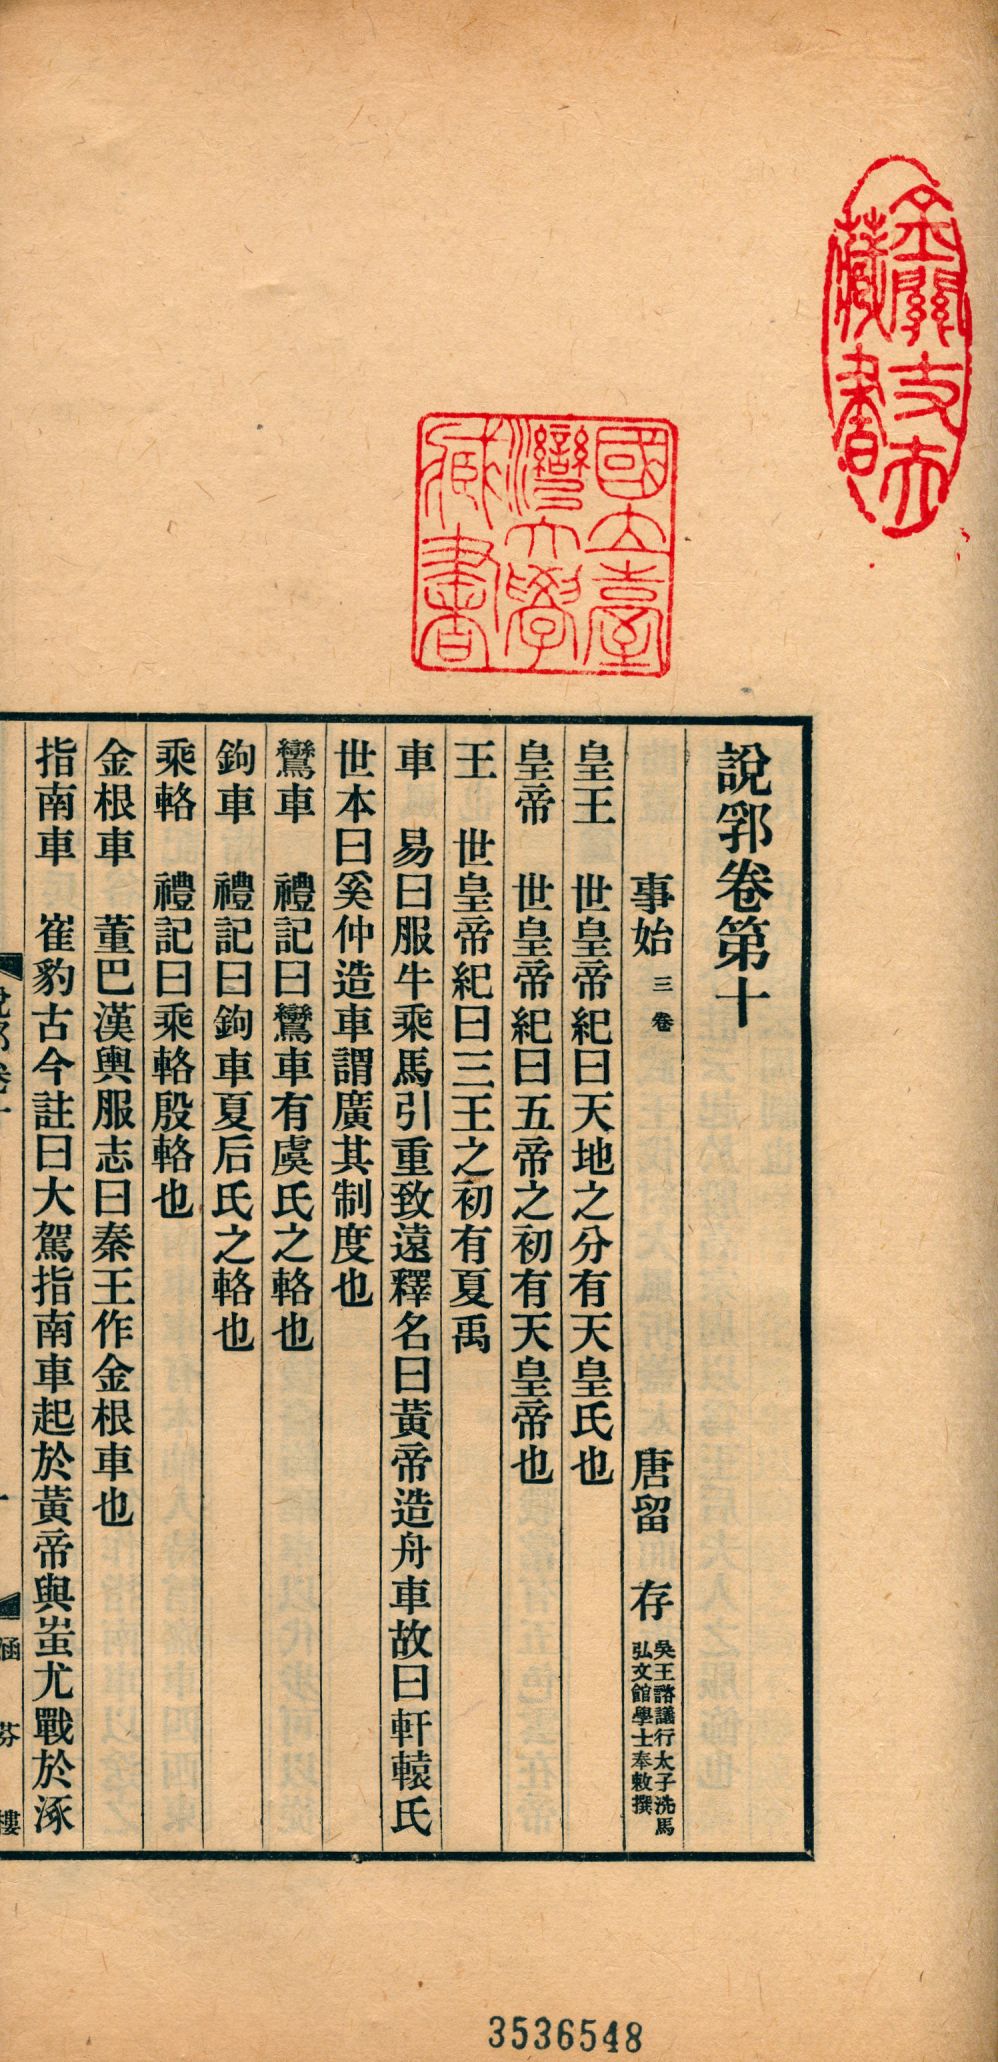 說郛卷第十
事始 三卷 唐留 存 吳王諮議行太子洗馬弘文館學士奉敕撰
皇王 世皇帝紀曰天地之分有天皇氏也
皇帝 世皇帝紀曰五帝之初有天皇帝也
王 世皇帝紀曰三王之初有夏禹
車 易曰服牛乘馬引重致遠釋名曰黃帝造舟車故曰軒轅氏
世本曰奚仲造車謂廣其制度也
鸞車 禮記曰鸞車有虞氏之輅也
鉤車 禮記曰鉤車夏后氏之輅也
乘輅 禮記曰乘輅殷輅也
金根車 董巴漢輿服志曰秦王作金根車也
指南車 崔豹古今註曰大駕指南車起於黃帝與蚩尤戰於涿
說郛卷十
一
涵芬樓
國立臺灣大學藏書
藏書
3536548